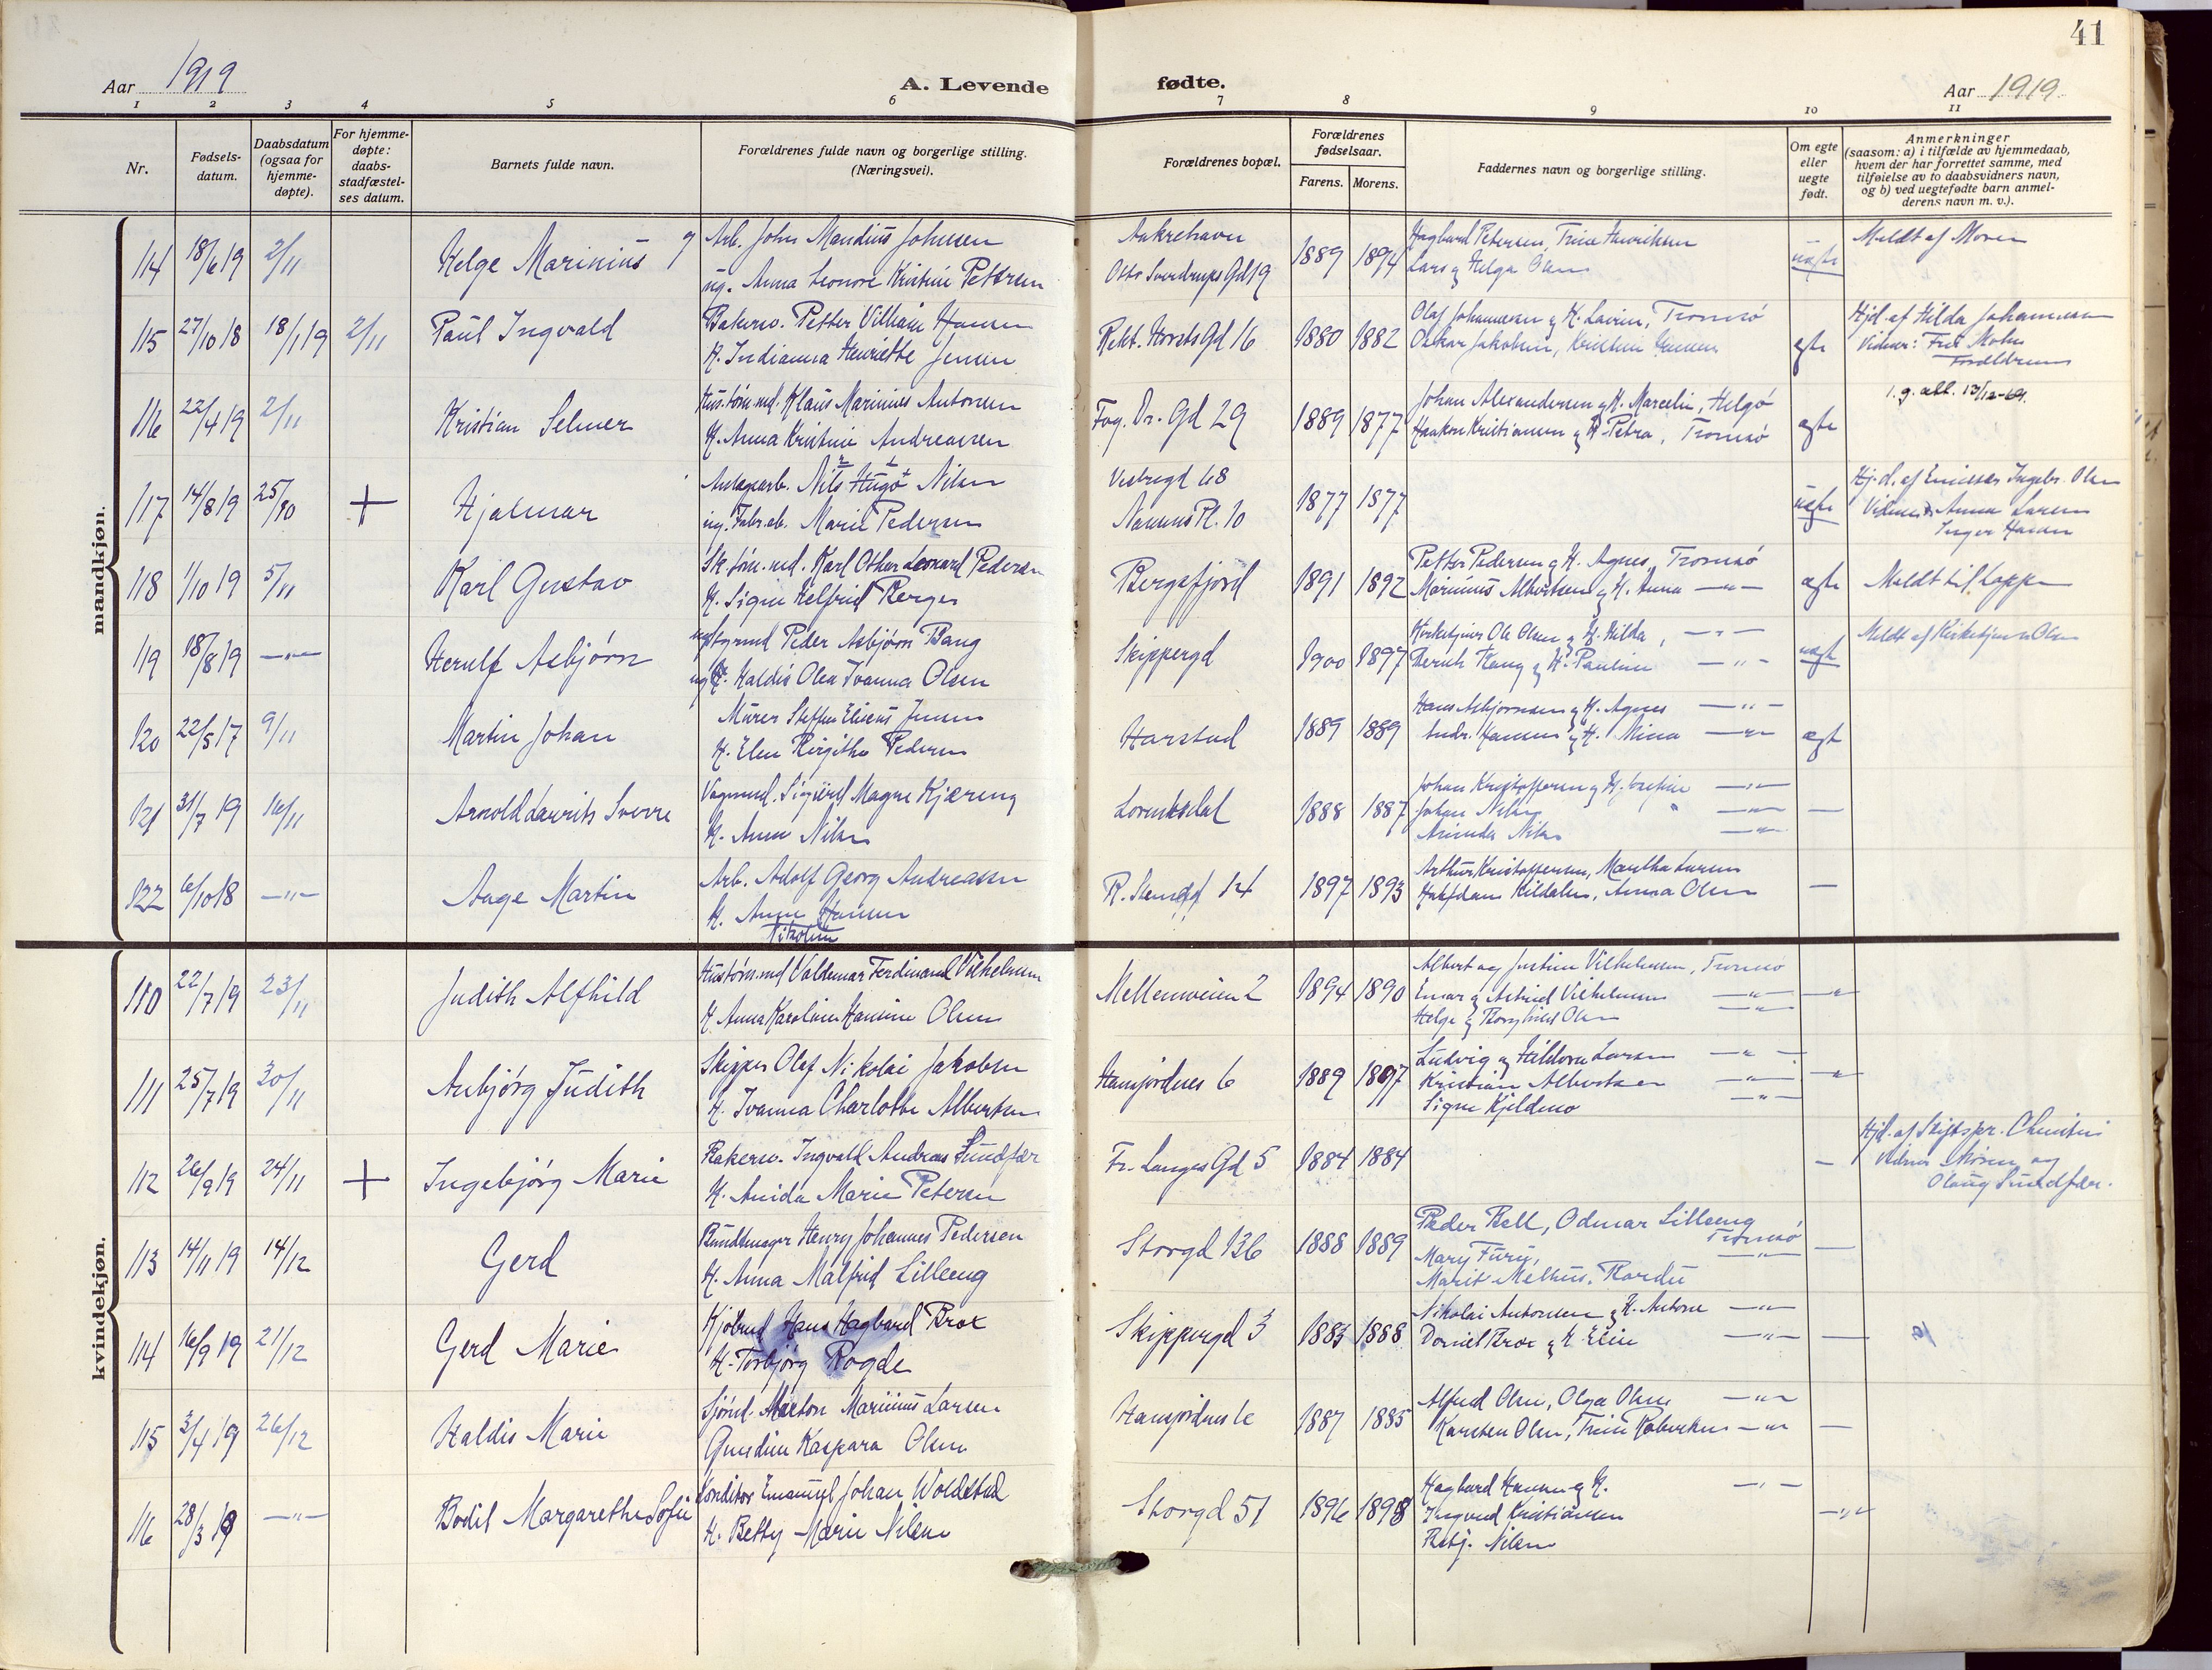 41
Aar 1919
A. Levende
fødte.
Aar 1919
1 2 3 4 5 6 7 8 9 10 11
Nr.
Fødsels-
datum.
Daabsdatum
(ogsaa for
hjemme-
døpte).
For hjemme-
døpte:
daabs-
stadfæstel-
ses datum.
Barnets fulde navn.
Forældrenes fulde navn og borgerlige stilling.
(Næringsvei).
Forældrenes bopæl.
Forældrenes
fødselsaar.
Farens. Morens.
Faddernes navn og borgerlige stilling.
Om egte
eller
uegte
født.
Anmerkninger
(saasom: a) i tilfælde av hjemmedaab,
hvem der har forrettet samme, med
tilføielse av to daabsvidners navn,
og b) ved uegtefødte barn anmel-
derens navn m. v.).
mandkjøn.
114 18/6 19 2/11 Helge Marinius
Arb. John Mandius Johnsen
ug. Anna Leonore Kristine Pettersen
Otto Sverdrups Gd 19
1889 1894
Hagbard Petersen, Trine Henriksen
Lars og Helga Olsen
uegte
Meldt af Moren
115 27/10 18 18/1 19 2/11 Paul Ingvald
Bakersv. Petter Villiam Hansen
H. Indianna Henriette Jensen
Rekt. Horsts Gd 16
1880 1882
Olaf Johannesen og H. Lavine, Tromsø
Oskar Jakobsen, Kristine Hansen
egte
Hjd. af Hilda Johannesen
Vidner: Fru Mohn
Forældrene
116 22/4 19 2/11 Kristian Selmer
Hustøm.md. Klaus Marinius Antonsen
H. Anna Kristine Andreassen
Fog. Dr. Gd 29
1889 1877
Johan Alexandersen og H. Marcelie, Helgø
Haakon Kristiansen og H. Petra, Tromsø
egte
1. g. att. 13/12-69.
117 14/8 19 25/10 + Hjalmar
Anlægsarb. Nils Hugo Nilsen
ug. Fabr.arb. Marie Pedersen
Vestregd 68
Nansens Pl. 10
1877 1877
uegte
Vidner: Anna Larsen
Inger Hansen
118 1/10 19 5/11 Karl Gustav
Sk. tøm. md. Karl Othar Leonard Pedersen
H. Signe Helfrid Berger
Bergsfjord
1891 1892
Petter Pedersen og H. Agnes, Tromsø
Marinius Albertsen og H. Anna —"—
egte
Meldt til Loppen
119 18/8 19 —"— Herulf Asbjørn
Peder Asbjørn Bang
Haldis Olea Ivanna Olsen
Skippergd
1900 1897
Kirketjener Ole Olsen og H. Hilda, —"—
Bernh. Haug og H. Pauline —"—
uegte
Meldt af Kirketjener Olsen
120 22/5 17 9/11 Martin Johan
Murer Steffen Eliseus Jensen
H. Elen Birgitha Pedersen
Harstad
1889 1889
Hans Asbjørnsen og H. Agnes —"—
Andr. Hansen og H. Mina —"—
egte
121 31/7 19 16/11 Arnold Laurits Sverre
Vognmd. Sigurd Magne Kjæreng
H. Anna Nilsen
Lorentsdal
1888 1887
Johan Kristoffersen og H. Josefine —"—
Johan Nilsen —"—
Arinda Nilsen —"—
—
122 6/10 18 —"— Aage Martin
Arb. Adolf Georg Andreassen
H. Anne Hansen
Nikoline
14
1897 1893
Arthur Kristoffersen, Martha Larsen
Halfdan Kildalen, Anna Olsen
—
kvindekjøn.
110 22/7 19 23/11 Judith Alfhild
Hustøm.md Valdemar Ferdinand Vilhelmsen
H. Anna Karoline Hansine Olsen
Mellemveien 2
1894 1890
Albert og Justine Vilhelmsen, Tromsø
Einar og Astrid Vilhelmsen —"—
Helge og Borghild Olsen —"—
—"—
111 25/7 19 30/11 Asbjørg Judith
Skipper Olaf Nikolai Jakobsen
H. Ivanna Charlotte Albertsen
Hansjordnes 6
1889 1897
Ludvig og Hildora Larsen —"—
Kristian Albertsen —"—
Signe Kjeldmo —"—
—"—
112 26/9 19 24/11 + Ingebjørg Marie
Bakersv. Ingvald Andreas Sundfær
H. Anida Marie Petersen
Fr. Langes Gd 5
1884 1884
—
Hjd. af Stiftspr.
Vidner: Moren og
Olaug Sundfær.
113 14/11 19 14/12 Gerd
Bundtmager Henry Johannes Pedersen
H. Anna Malfrid Lilleeng
Storgd 136
1888 1889
Peder Bell, Odmar Lilleeng
Tromsø
Mary Furu, —"—
Marit Melhus, Bardu
—
114 16/9 19 21/12 Gerd Marie
Kjøbmd Hans Hagbard Brox
H. Torbjørg Rogde
Skippergd 3
1883 1888
Nikolai Antonsen og H. Antone —"—
Daniel Brox og H. Elise —"—
—
115 3/4 19 26/12 Haldis Marie
Sjømd. Marton Marinius Larsen
Gundine Kaspara Olsen
Hansjordnes 6
1887 1885
Alfred Olsen, Olga Olsen —"—
Karsten Olsen, Trine Robertsen —"—
—
116 28/3 19 —"— Bodil Margarethe Sofie
Konditor Emanuel Johan Woldstad
H. Betty Marie Nilsen
Storgd 51
1896 1898
Hagbard Hansen og H. —"—
Ingvald Kristiansen
Rasbj. Nilsen
—"—